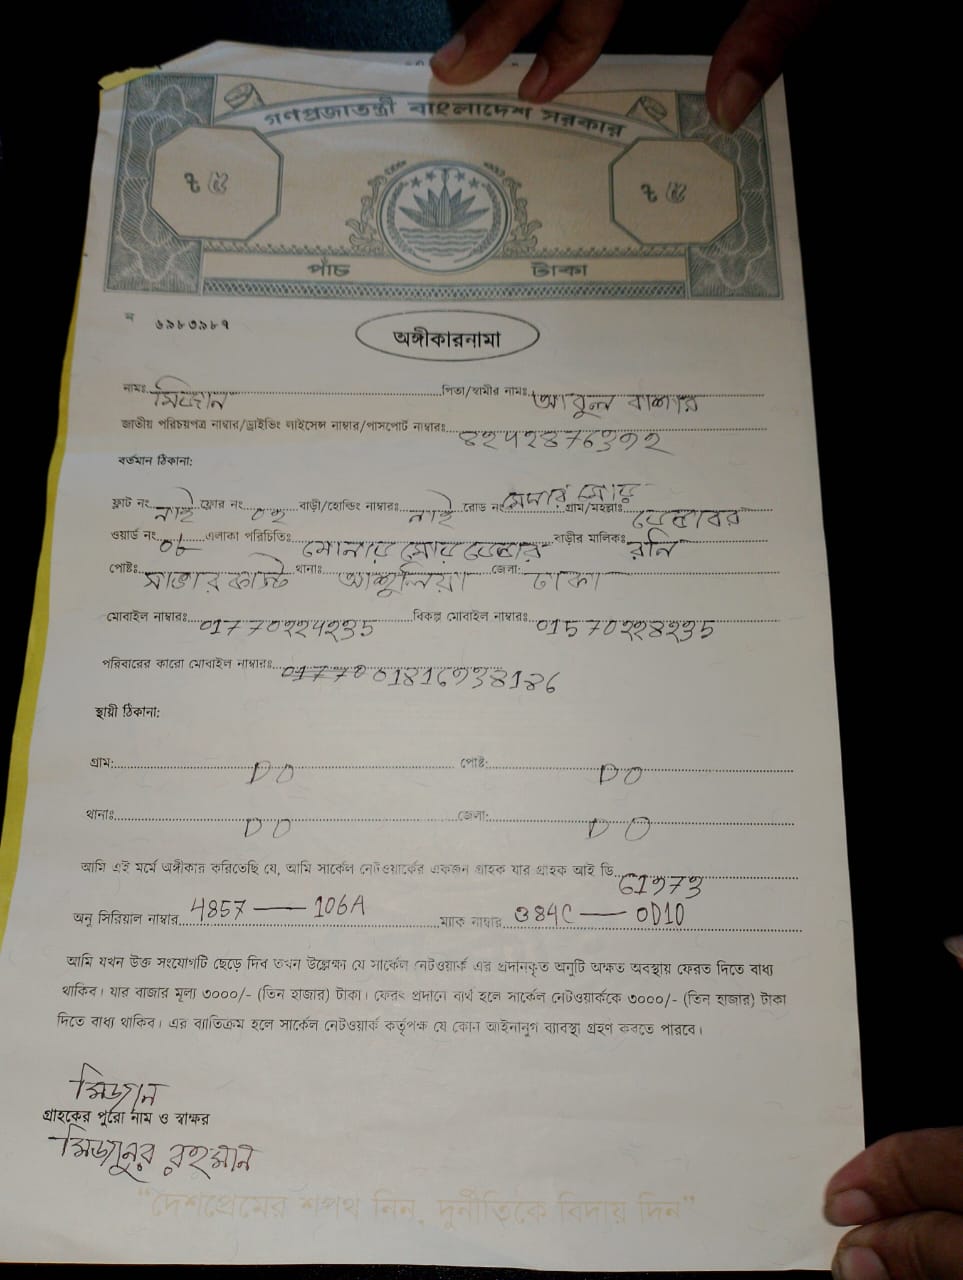 গণপ্রজাতন্ত্রী বাংলাদেশ সরকার
৳ ৫ ৳ ৫
পাঁচ টাকা
ষ ৬৯৮৩৯৮৭
অঙ্গীকারনামা
নামঃ মিজান পিতা/স্বামীর নামঃ আবুল বাশার
জাতীয় পরিচয়পত্র নাম্বার/ড্রাইভিং লাইসেন্স নাম্বার/পাসপোর্ট নাম্বারঃ
বর্তমান ঠিকানা:
ফ্লাট নং নাই ফ্লোর নং ০২ বাড়ী/হোল্ডিং নাম্বারঃ নাই রোড নং গ্রাম/মহল্লাঃ
ওয়ার্ড নং ০৮ এলাকা পরিচিতিঃ বাড়ীর মালিকঃ রনি
পোষ্টঃ সাভার ক্যান্ট থানাঃ আশুলিয়া জেলা: ঢাকা
মোবাইল নাম্বারঃ বিকল্প মোবাইল নাম্বারঃ
পরিবারের কারো মোবাইল নাম্বারঃ
স্থায়ী ঠিকানা:
গ্রাম: DO পোষ্ট: DO
থানাঃ DO জেলা: DO
আমি এই মর্মে অঙ্গীকার করিতেছি যে, আমি সার্কেল নেটওয়ার্কের একজন গ্রাহক যার গ্রাহক আই ডি
অনু সিরিয়াল নাম্বার 4857 — 106A ম্যাক নাম্বার 384C — 0D10
আমি যখন উক্ত সংযোগটি ছেড়ে দিব তখন উল্লেক্ষ্য যে সার্কেল নেটওয়ার্ক এর প্রদানকৃত অনুটি অক্ষত অবস্থায় ফেরত দিতে বাধ্য
থাকিব। যার বাজার মূল্য ৩০০০/- (তিন হাজার) টাকা। ফেরৎ প্রদানে ব্যর্থ হলে সার্কেল নেটওয়ার্ককে ৩০০০/- (তিন হাজার) টাকা
দিতে বাধ্য থাকিব। এর ব্যাতিক্রম হলে সার্কেল নেটওয়ার্ক কর্তৃপক্ষ যে কোন আইনানুগ ব্যাবস্থা গ্রহণ করতে পারবে।
মিজান
গ্রাহকের পুরো নাম ও স্বাক্ষর
মিজানুর রহমান
“দেশপ্রেমের শপথ নিন, দুর্নীতিকে বিদায় দিন”